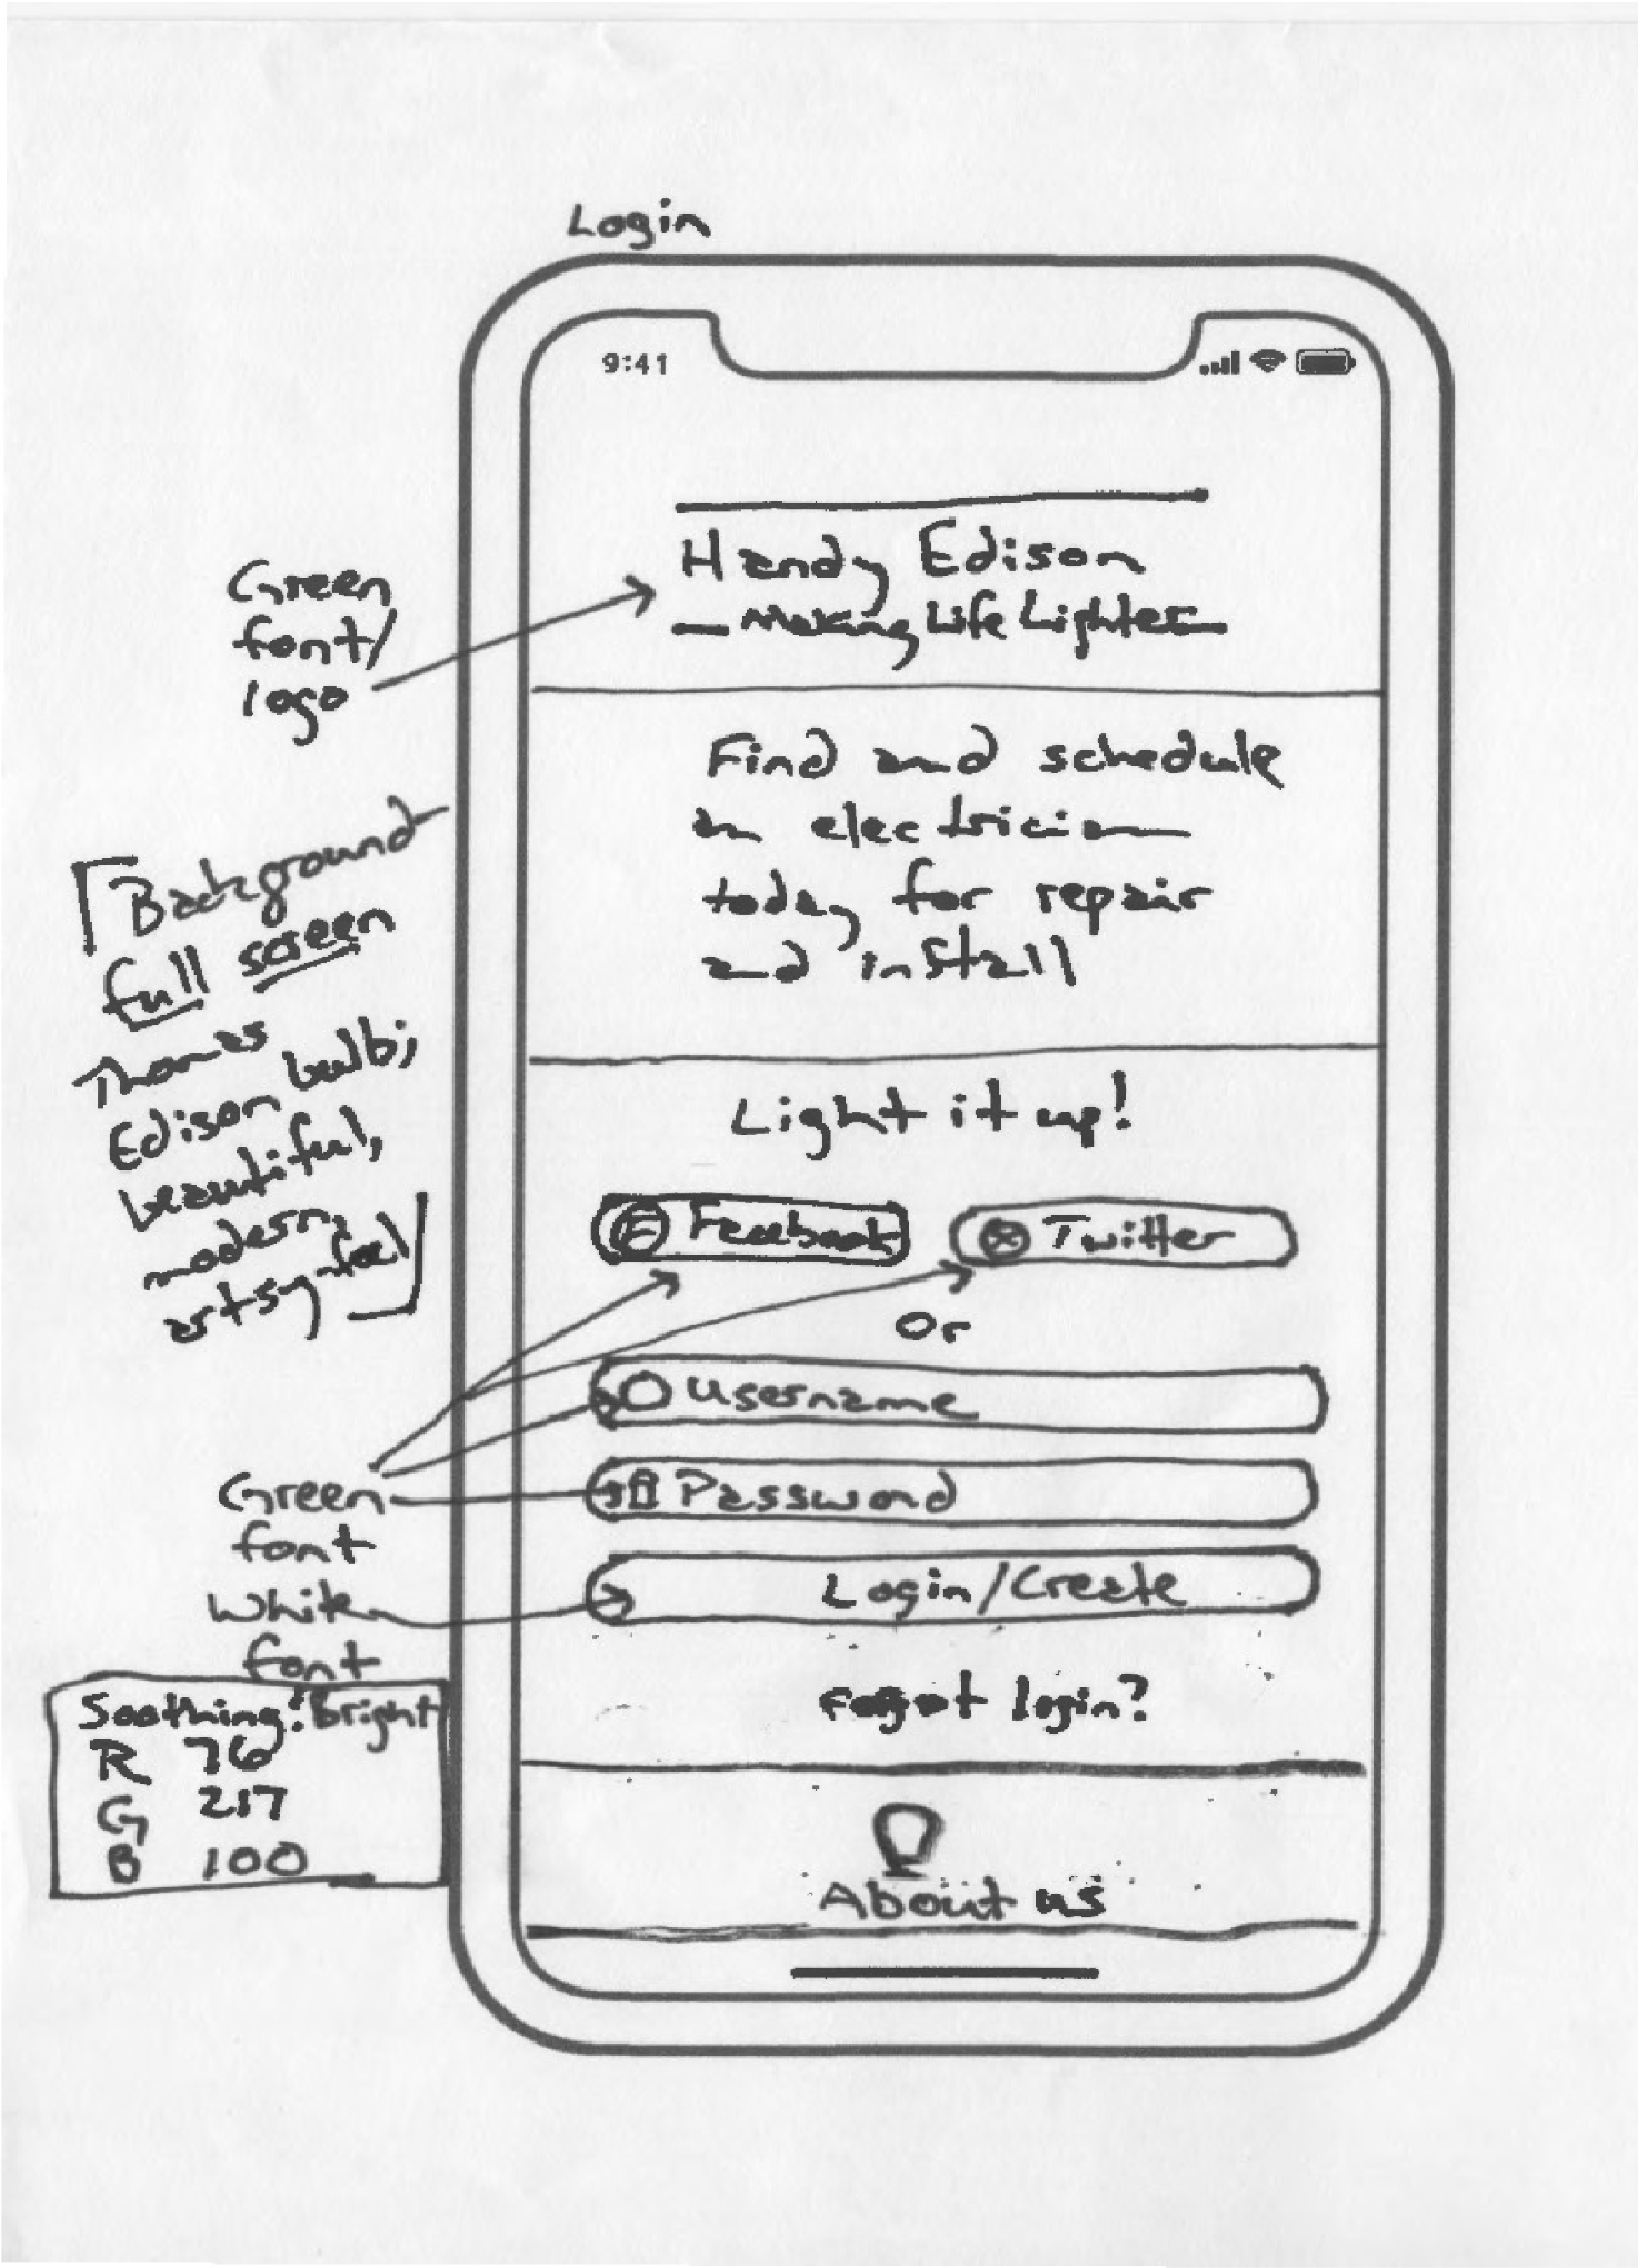 Login
9:41
Handy Edison
- Making Life Lighter -
Find and schedule
an electrician
today for repair
and install
Light it up!
F Facebook
Twitter
Or
Username
Password
Login/Create
Forgot login?
About us
Green
font/
logo
[Background
full screen
Thomas
Edison bulb;
beautiful,
modern,
artsy-feel]
Green
font
White
font
Soothing! Bright
R 76
G 217
B 100